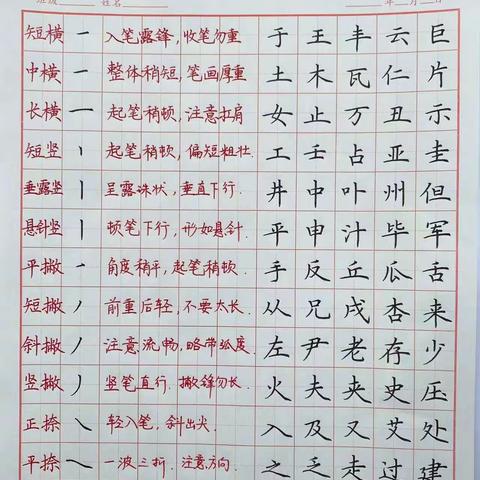 班级 姓名 年 月 日
短横 一 入笔露锋,收笔勿重 于 王 丰 云 巨
中横 一 整体稍短,笔画厚重 土 木 瓦 仁 片
长横 一 起笔稍顿,注意扛肩 女 止 万 丑 示
短竖 丨 起笔稍顿,偏短粗壮. 工 壬 占 亚 圭
垂露竖 丨 呈露珠状,垂直下行. 井 中 叶 州 但
悬针竖 丨 顿笔下行,形如悬针. 平 申 汁 毕 军
平撇 ㇀ 角度稍平,起笔稍顿. 手 反 丘 瓜 舌
短撇 丿 前重后轻,不要太长. 从 兄 戌 杏 来
斜撇 丿 注意流畅,略带弧度. 左 尹 老 存 少
竖撇 丿 竖笔直行.撇锋勿长. 火 夫 夹 史 压
正捺 ㇏ 轻入笔,斜出尖. 入 及 又 艾 处
平捺 ㇏ 一波三折.注意方向. 之 乏 走 过 建